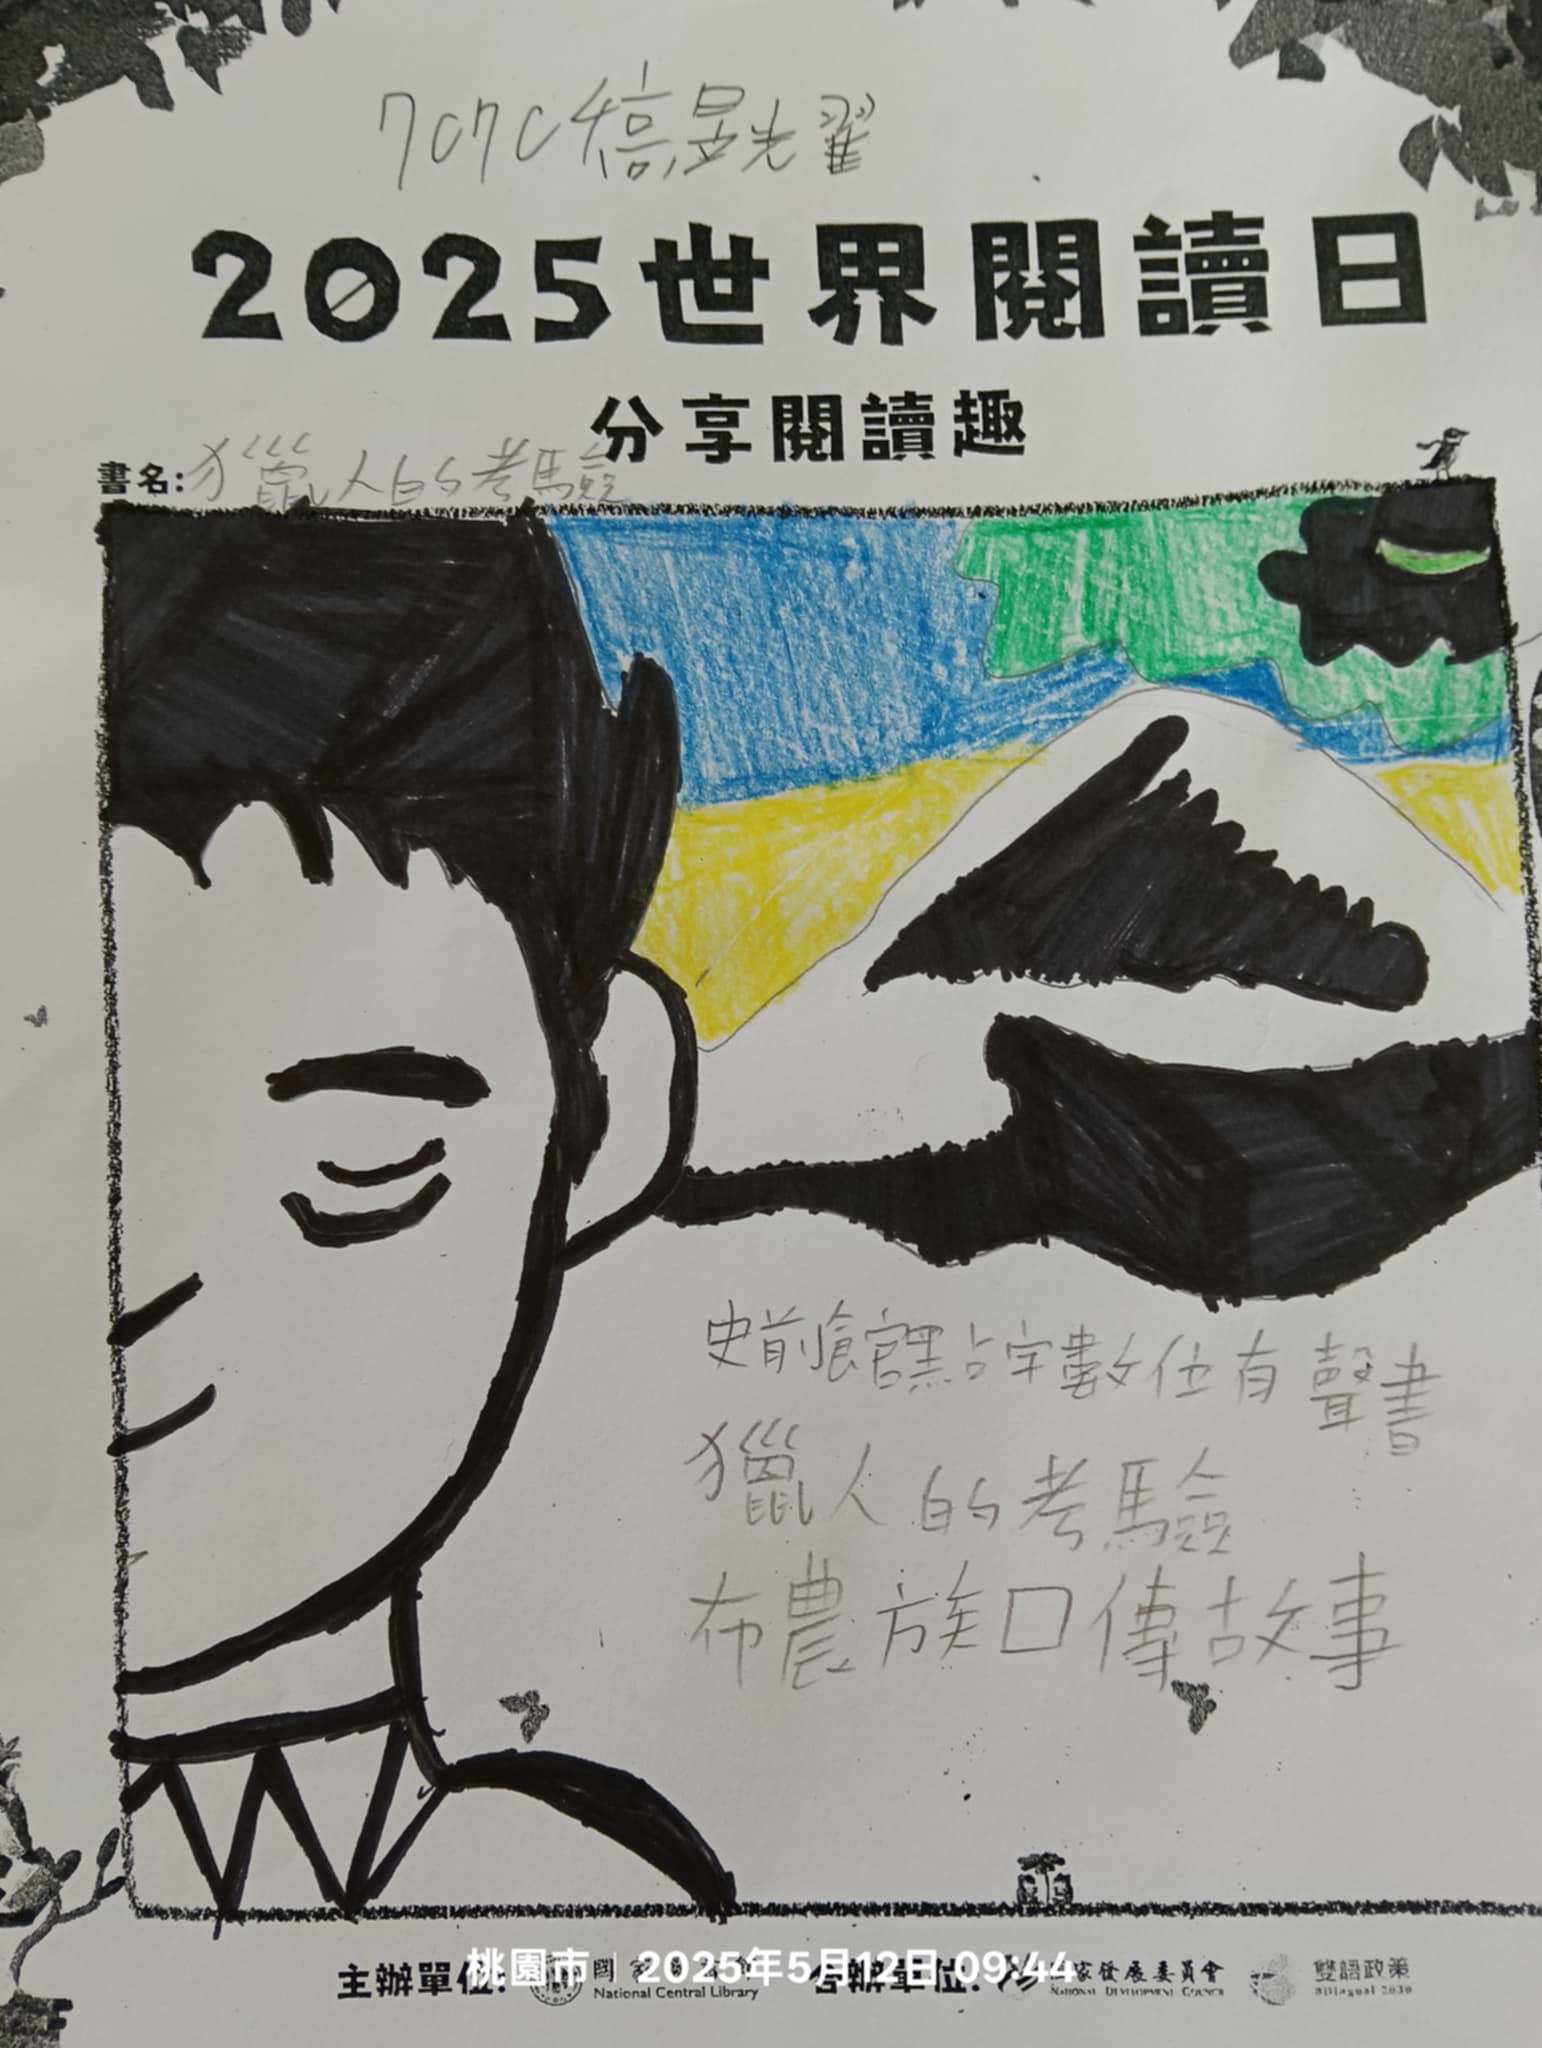 2025世界閱讀日
分享閱讀趣
書名:獵人的考驗
史前館點字數位有聲書
獵人的考驗
布農族口傳故事
主辦單位:
National Central Library
國家發展委員會
NATIONAL DEVELOPMENT COUNCIL
雙語政策
Bilingual 2030
桃園市 | 2025年5月12日 09:44